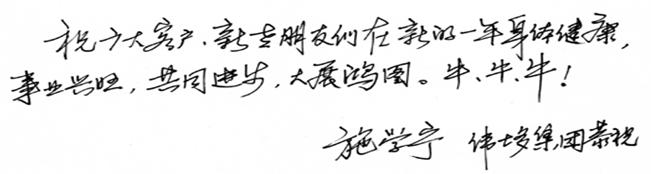 祝广大客户、新老朋友们在新的一年身体健康,
事业兴旺,共同进步,大展鸿图。牛、牛、牛!
施学宁 伟多集团恭祝